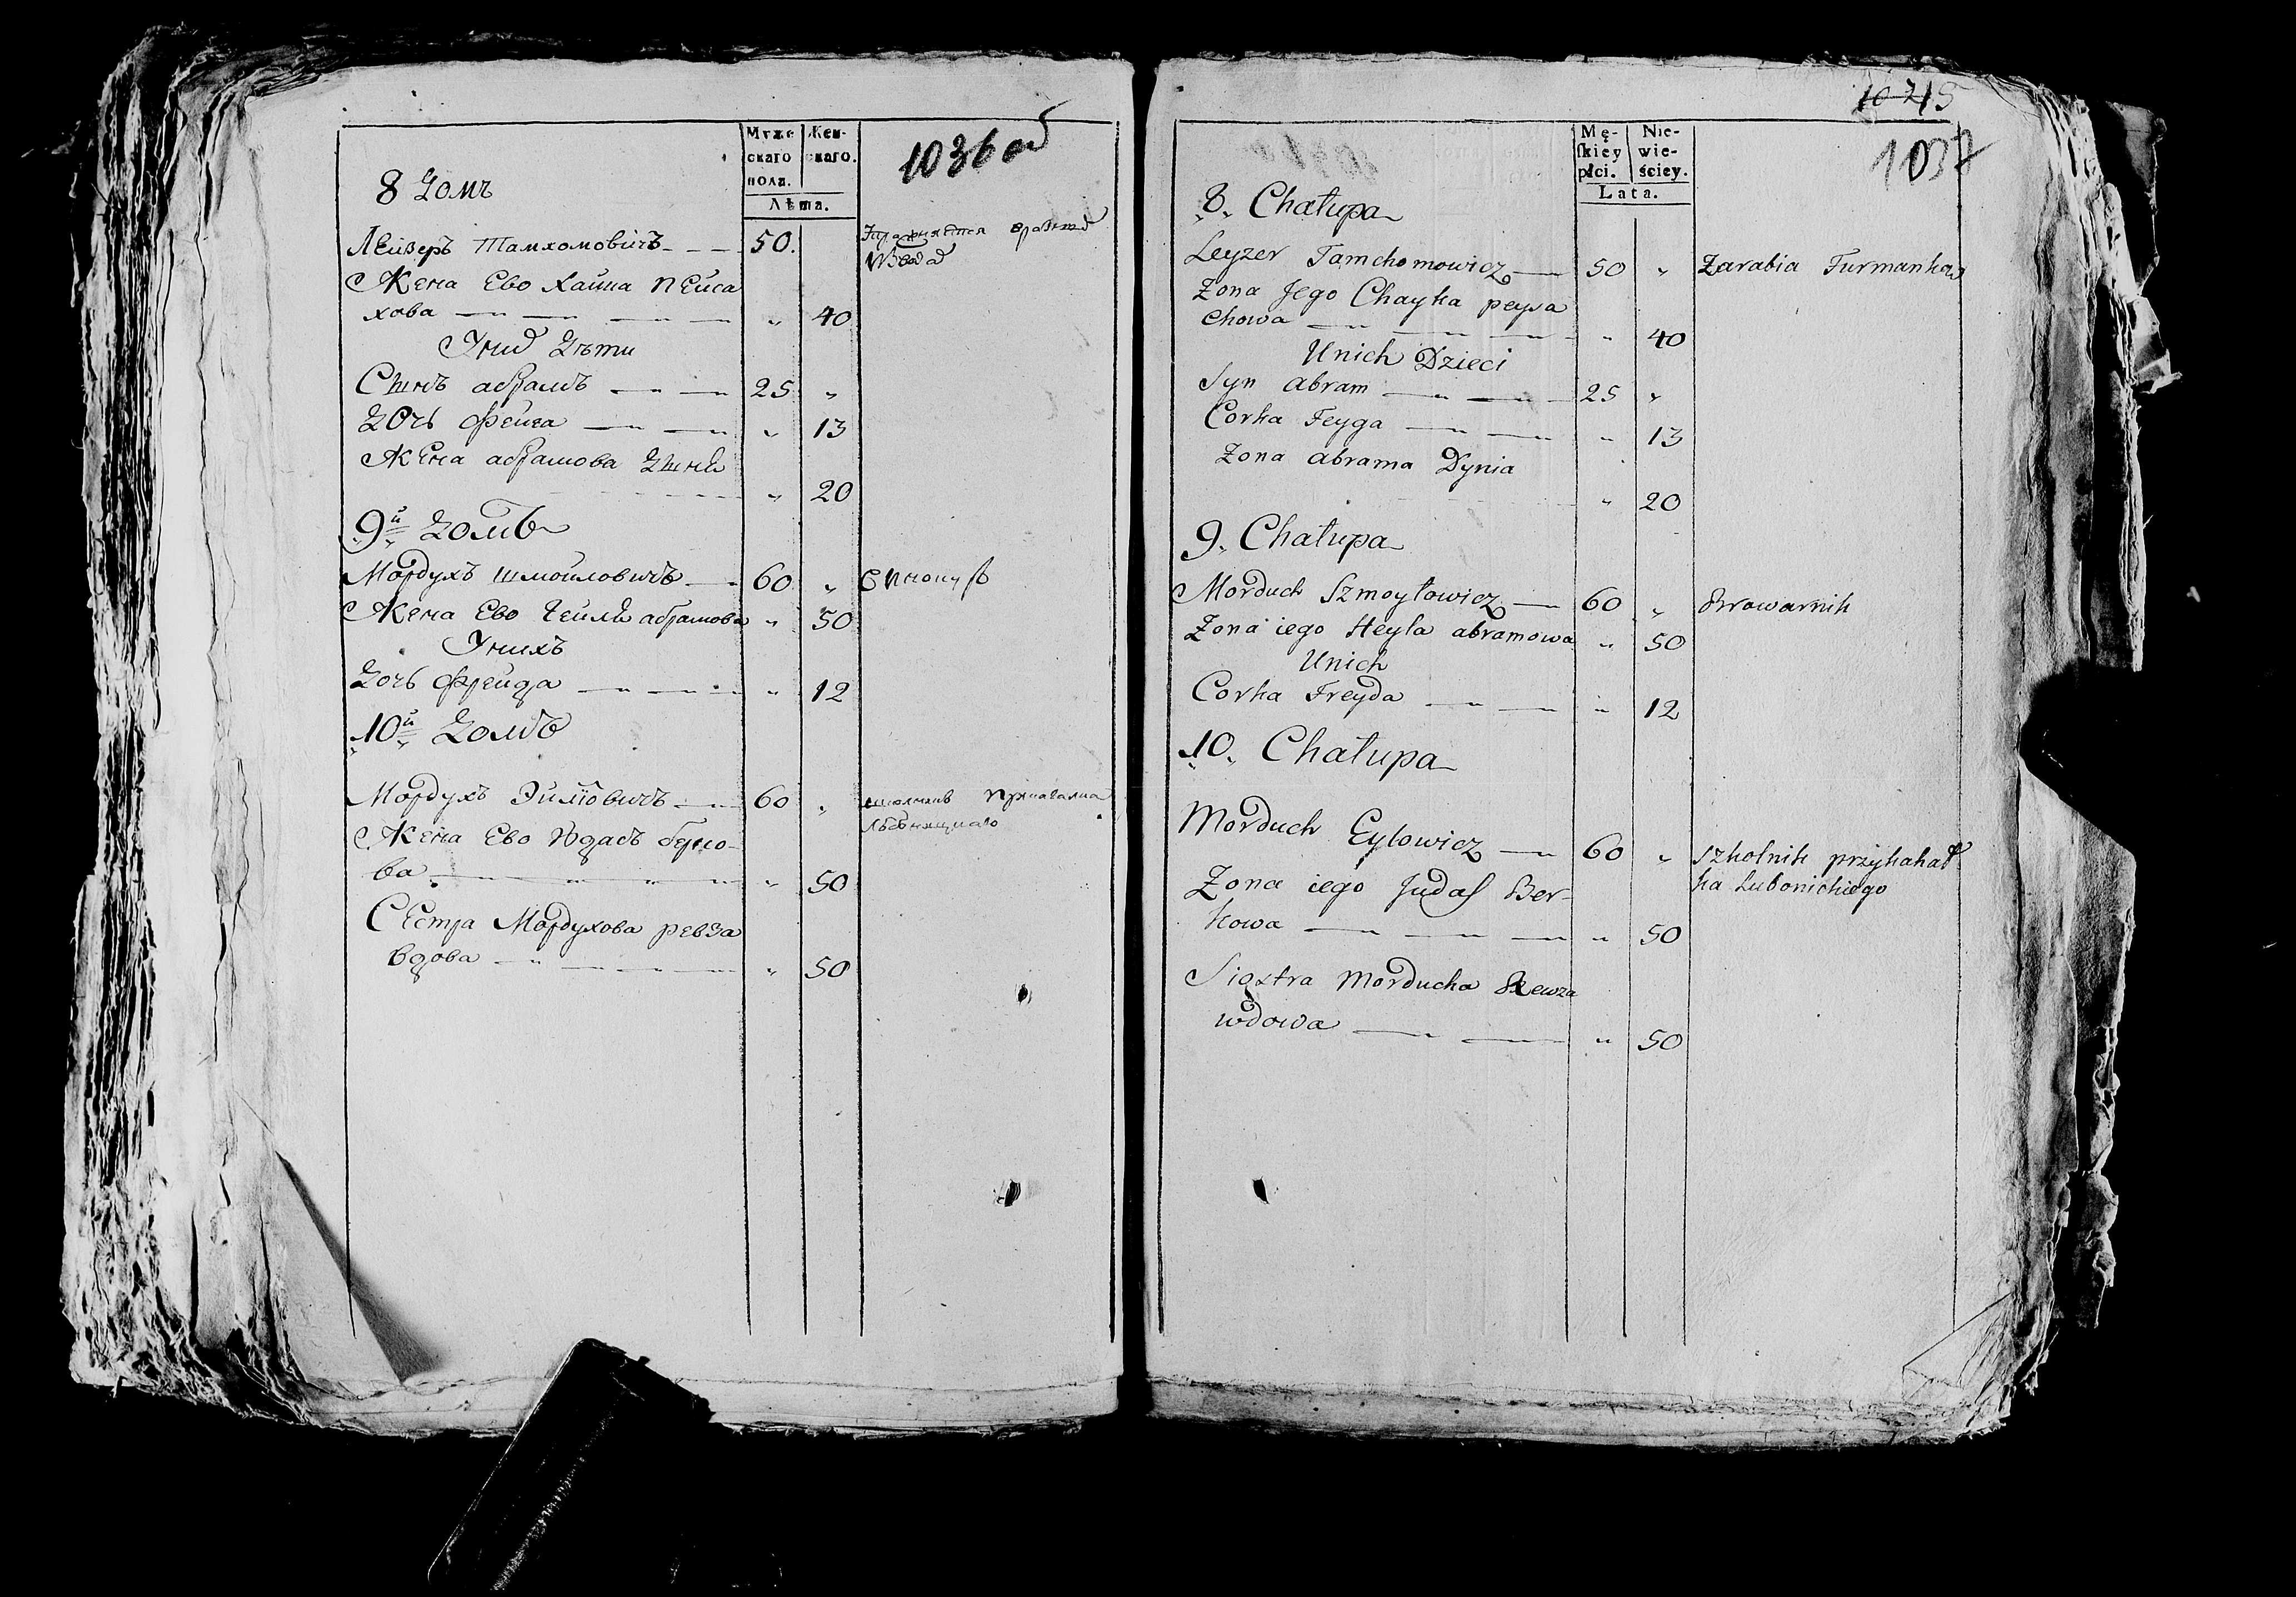 Муже
скаго
пола.
Жен-
скаго.
Лѣта.
1036 об
8 Домъ
Лейзеръ Тамхомовичъ 50.
Жена Ево Хайка Пейса
хова „ 40
Уних Дѣти
Сынъ абрамъ 25 „
Дочь Фейга „ 13
Жена абрамова Дыня
„ 20
9й Домъ
Мордухъ Шмойловичъ 60 „
Жена Ево Гейля абрамова „ 50
Унихъ
Дочь Фрейда „ 12
10й Домъ
Мордухъ Эйлiовичъ 60 „
Жена Ево Юдасъ берко-
ва „ 50
Сестра Мордухова ревза
вдова „ 50
15
1037
Mę-
ſkiey
płci.
Nie-
wie-
ściey.
Lata.
8. Chałupa
Leyzer Tamchomowicz 50 „ Zarabia Furmanką
Zona Jego Chayka peysa
chowa „ 40
Unich Dzieci
Syn abram 25 „
Corka Feyga „ 13
Zona abrama Dynia
„ 20
9. Chałupa
Morduch Szmoyłowicz 60 „ Browarnik
Zona iego Heyla abramowa „ 50
Unich
Corka Freyda „ 12
10. Chałupa
Morduch Eylowicz 60 „ Szkolnik przykahał
ka Lubonichiego
Zona iego Judaſ Ber-
kowa „ 50
Siostra Morducha Rewza
wdowa „ 50